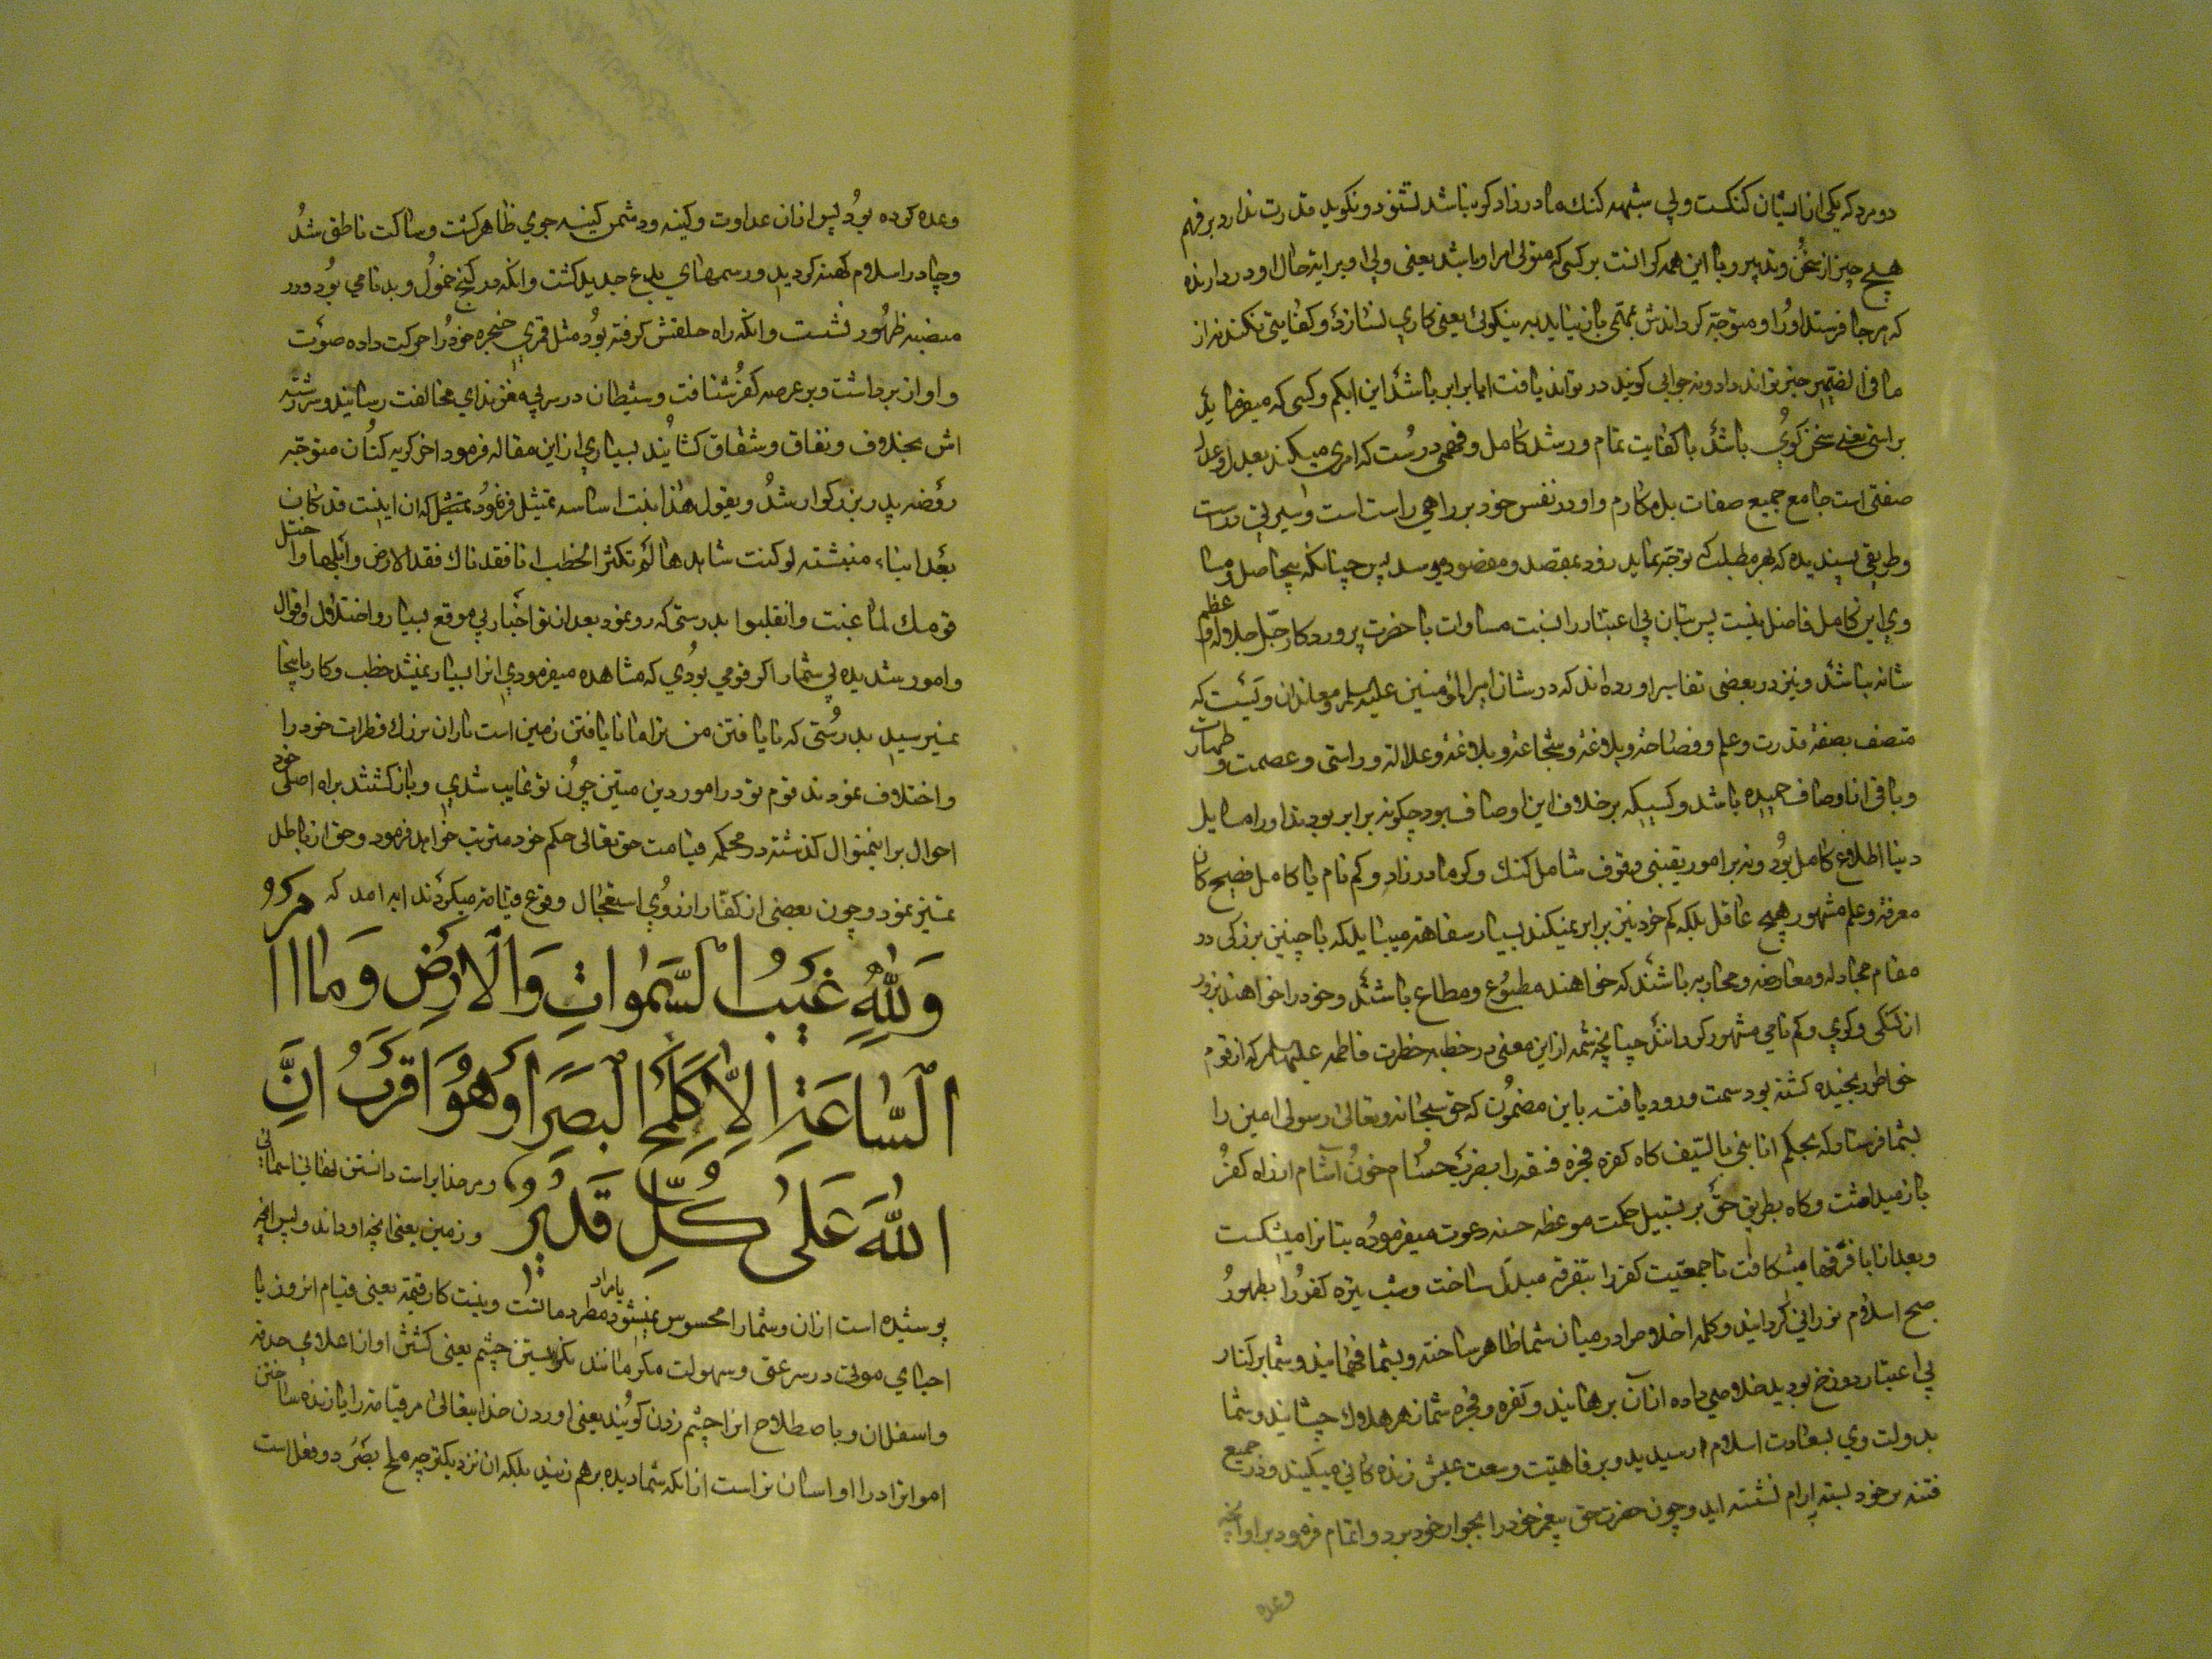 دو مرد که یکی از ایشان کنکست ولی بشبهه کنك مادر زاد کویا باشد نشنود و نکوید قدرت ندارد بر فهم
هیچ چیز از سخن و تدبیر و با این همه کرانست بر کسی که متولی امر او باشد یعنی ولی او برای حال او در دارنده
که هر جا فرستد او را و متوجه کرداندش بمهمی باز نیاید به نیکوئی یعنی کاری نسازد و کفایتی نکند نه از
ما فی الضمیر خبر تواند داد و نه جوابی کویند در تواند یافت ایا برابر باشد این ابکم و کسی که میفرماید
براستی یعنی سخن کوی باشد با کفایت تمام و رشد کامل و فهمی درست که امری میکند بعدل و عدل
صفتی است جامع جمیع صفات بل مکارم و او در نفس خود بر راهی راست است و سیرتی درست
و طریقی پسندیده که بهر مطلب که توجه نماید زود بمقصد و مقصود میرسد پس چنانکه بیحاصل و مسا
وی این کامل فاضل نیست پس بتان بی اعتبار را نسبت مساوات با حضرت پروردکار جل جلاله و عظم
شانه باشد و نیز در بعضی تفاسیر اورده اند که در شان امیر المؤمنین علیه السلم و معاندان ویست که
متصف بصفة قدرت و علم و فصاحة و بلاغة و شجاعة و بلاغة و علالة و راستی و عصمت و طهارت
و باقی از اوصاف حمیده باشد و کسیکه بر خلاف این اوصاف بود چکونه برابر بود نه او را مسایل
دنیا اطلاع کامل بود و نه بر امور یقینی وقوف شامل کنك و کر مادر زاد و کم نام با کامل فصیح کان
معرفة و علم مشهور هیچ عاقل بلکه کم خرد نیز برابر نمیکند بسیار سفاهة میباید که با چنین بزرکی در
مقام مجادله و معارضه و محاربه باشند که خواهند مطبوع و مطاع باشند و خود را خواهند بزور
از کنکی و کوری و کم نامی مشهور کردانند چنانچه شمه از این معنی در خطبه حضرت فاطمه علیها سلم که از قوم
خواطر رنجیده کشته بود سمت ورود یافت باین مضمون که حق سبحانه و تعالی رسولی امین را
بشما فرستاد که بحکم انا نبی بالسیف کاه کفره فجره فسقه را بضرب حسام خون آشام از راه کفر
باز میداشت و کاه بطریق حق بر سبیل حکمت موعظه حسنه دعوت میفرموده بتانرا میشکست
و بعد از ان با فرقها میشکافت تا جمعیت کفر را بتفرقه مبدل ساخت و شب تیره کفر را بظهور
صبح اسلام نورانی کردانید و کلمه اخلاص را در میان شما ظاهر ساخته و بشما فهمانید و شما بر کنار
بی اعتبار دوزخ بودید خلاصی داده از ان برهانید و کفره و فجره شما زهر هلاك چشانید و شما
بدولت وی بسعادت اسلام رسیدید و بر فاهیت و سعت عیش زنده کانی میکنید و در جمیع
فتنه بر خود بسته بارام نشسته اید و چون حضرت حق پیغمبر خود را بجوار خود برد و اتمام فرمود بر او انچه
وعده
وعده کرده بود پس از ان عداوت و کینه و دشمن کینه جوی ظاهر کشت و ساکت ناطق شد
و چادر اسلام کهنه کردید و رسمهای بدع جدید کشت و انکه در کنج خمول و بد نامی بود در
منصبه ظهور نشست و انکه راه حلقش کرفته بود مثل قمری خنجره خود را حرکت داده صوت
و اواز برداشت و بر عرصه کفر شتافت و شیطان در سر بی مغز ندای مخالفت رسانید و سررشته
اش بخلاف و نفاق و شقاق کشانید بسیاری از این مقاله فرمود اخر کریه کنان متوجه
روضه پدر بزرکوار شد و بقول هذا بنت اساسه تمثیل فرمود تمثیل که ان اینست قد کان
بعد انباء منبشته لو کنت شاهدها لم تکثر الخطب انا فقدناك فقد الارض وابلها و اختل
قومك لما غبت وانقلبوا بدرستی که رو نمود بعد از تو اخبار بی موقع بسیار و اختلال و اقوال
و امور شدیده بی شمار اکر قومی بودی که مشاهده میفرمودی انرا بسیار نمیشد خطب و کار باینجا
نمیرسید بدرستی که نا یافتن من ترا مانا یافتن زمین است باران بزرك قطرات خود را
و اختلاف نمودند قوم تو در امور دین متین چون تو غایب شدی و باز کشتند براه اصلی خود
احوال بر اینمنوال کذشته در محکمه قیامت حق تعالی حکم خود مترتب خواهد فرمود و حق از باطل
تمیز نمود و چون بعضی از کفار از روی استعجال وقوع قیامة میکردند ایه امد که
وَلِلّٰهِ غَيْبُ السَّمٰوَاتِ وَالْاَرْضِ وَمٰا اَمْرُ
السّٰاعَةِ اِلاّٰ كَلَمْحِ الْبَصَرِ اَوْ هُوَ اَقْرَبُ اِنَّ
اللّٰهَ عَلىٰ كُلِّ شَيْءٍ قَدِيرٌ و مر خدا یراست دانستن نهانی اسمانی
و زمین یعنی انچه او داند و بس انچه
پوشیده است از ان و شما را محسوس نمیشود یا مراد مطر و مانست و نیست کار قیمة یعنی قیام انروز با
احیای موتی در سرعت و سهولت مکر مانند نکریستن چشم یعنی کشش او از اعلای حدقه
و اسفل ان و باصطلاح انرا چشم زدن کویند یعنی اوردن خدایتعالی مر قیامة را یا زنده ساختن
اموات در او اسان تر است از انکه شما دیده بر هم زنید بلکه ان نزدیکتر چه ملح بصر دو فعل است